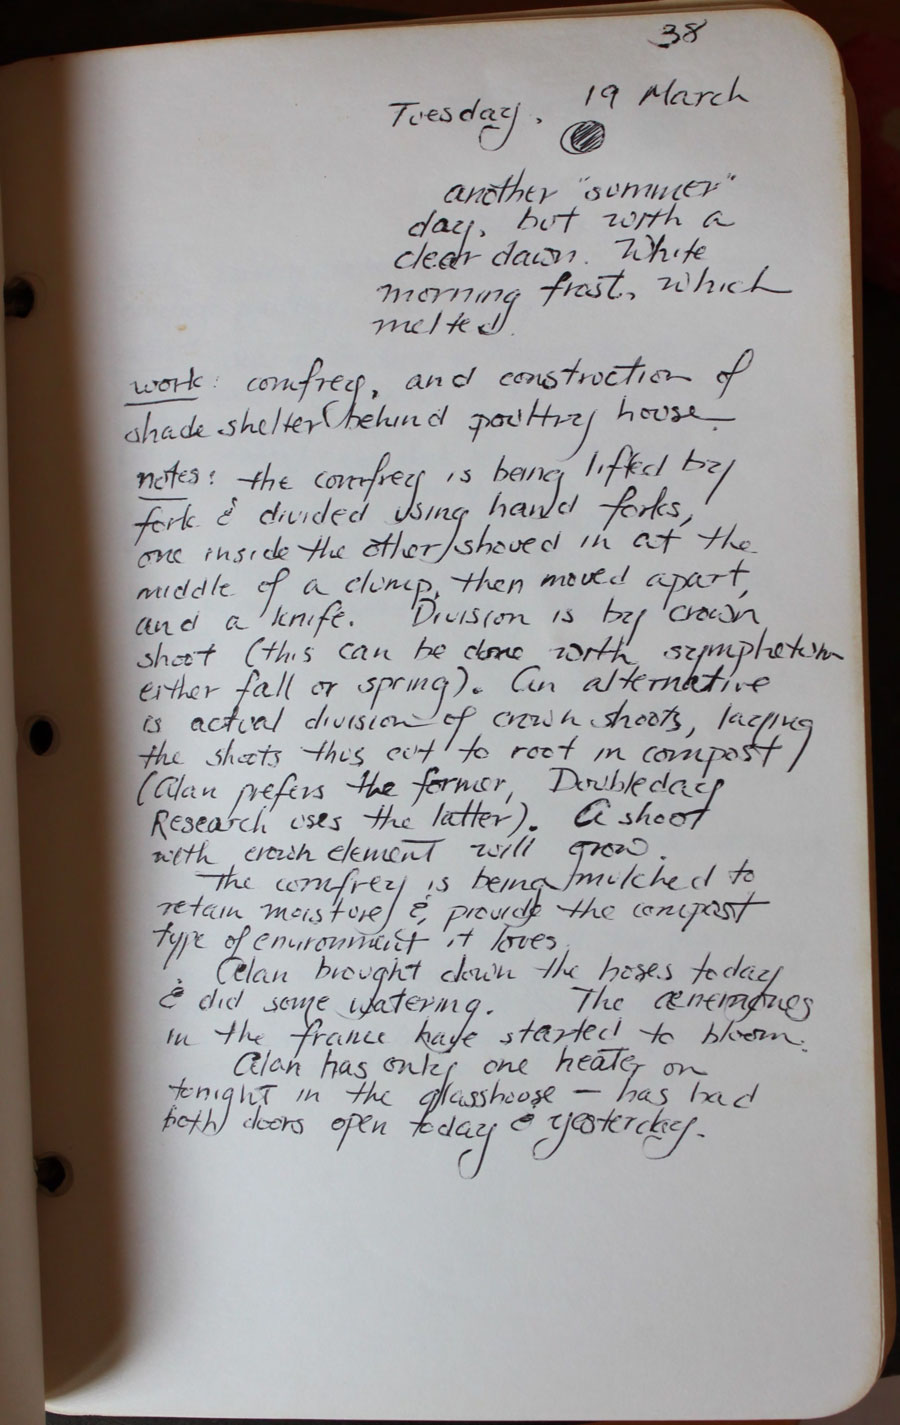 38
Tuesday, 19 March
another "summer"
day, but with a
clear dawn. White
morning frost, which
melted.
work: comfrey, and construction of
shade shelter behind poultry house.
notes: the comfrey is being lifted by
fork & divided using hand forks,
one inside the other, shoved in at the
middle of a clump, then moved apart,
and a knife. Division is by crown
shoot (this can be done with symphetum
either fall or spring). An alternative
is actual division of crown shoots, laying
the shoots thus cut to root in compost
(Alan prefers the former, Doubleday
Research uses the latter). A shoot
with crown element will grow.
The comfrey is being mulched to
retain moisture, & provide the compost
type of environment it loves.
Alan brought down the hoses today
& did some watering. The anemones
in the frame have started to bloom.
Alan has only one heater on
tonight in the glasshouse — has had
both doors open today & yesterday.